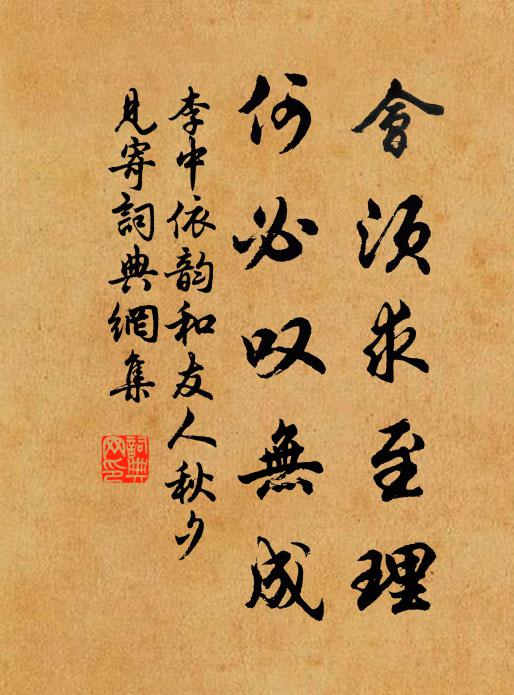 會須求至理
何必叹無成
李中依韵和友人秋夕
見寄詞典網集
詞典
网印